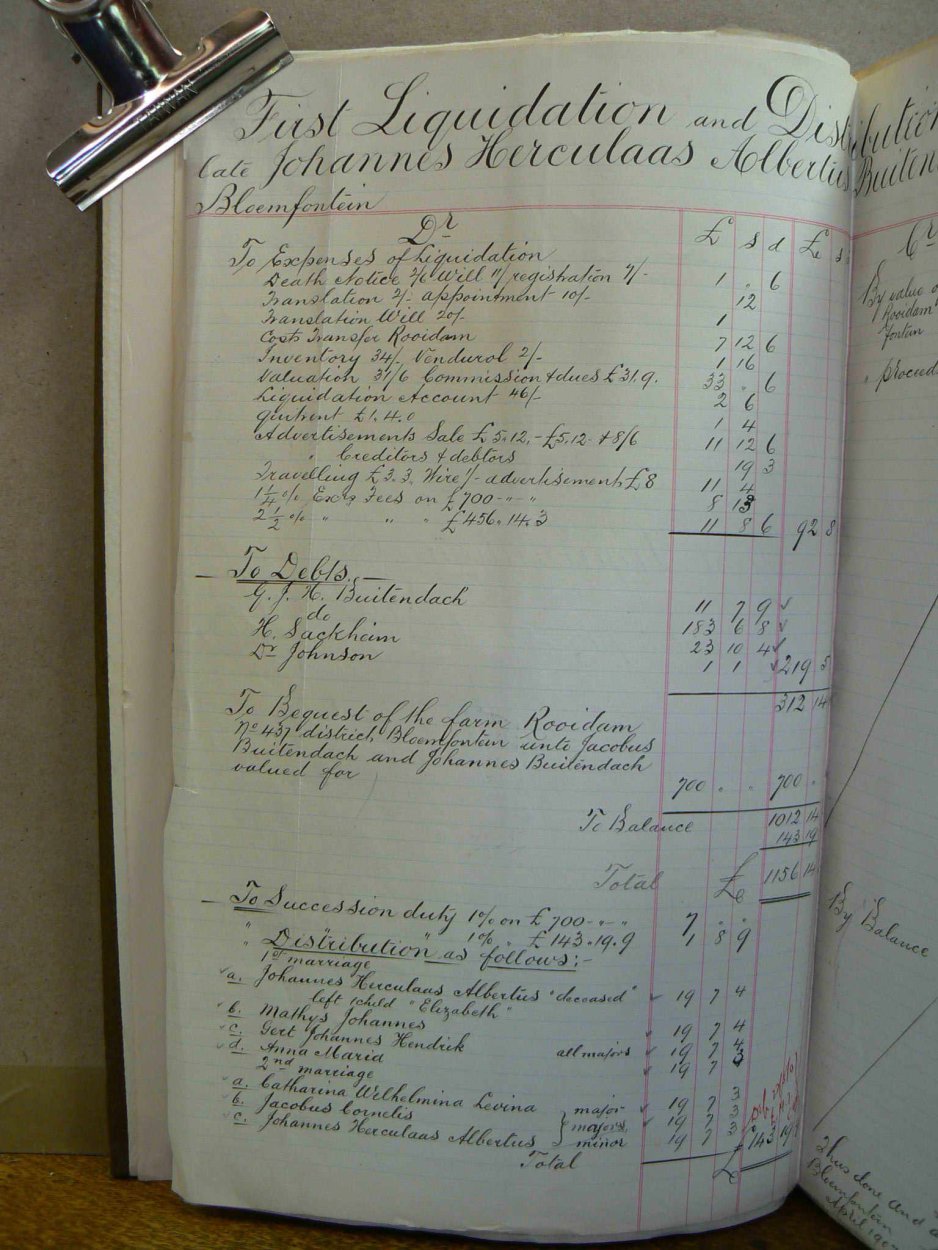 First Liquidation and Distribution
late Johannes Herculaas Albertus Buiten
Bloemfontein
Dr
£ s d £ s
To Expenses of Liquidation
Death Notice 2/6 Will 11/ registration 7/- 1 " 6
Translation 2/- appointment 10/- 12
Translation Will 20/- 1
Costs Transfer Rooidam 7 12 6
Inventory 34/- Vendurol 2/- 1 16
Valuation 37/6 Commission & dues £31.9. 33 " 6
Liquidation Account 46/- 2 6
Quitrent £1.4.0 1 4
Advertisements Sale £5.12.-£5.12. & 8/6 11 12 6
" Creditors & debtors 19 3
Travelling £3.3. Wire 1/- advertisements £8 11 4
1¼ % Exrs Fees on £700 -"-" 8 15
2½ % " " " £456.14.3 11 8 6 92 8
To Debts.
G. J. H. Buitendach 11 7 9 ✓
do 183 6 8 ✓
H. Sackheim 23 10 4 ✓
Dr Johnson 1 1 ✓ 219 5
312 14
To Bequest of the farm Rooidam
No 437 district Bloemfontein unto Jacobus
Buitendach and Johannes Buitendach
valued for 700 " " 700 "
1012 14
To Balance 143 19
Total £ 1156 14
To Succession duty 1% on £700 -"-" 7 " "
" " 1% " £143.19.9 1 8 9
Distribution as follows:-
1st marriage
a. Johannes Herculaas Albertus "deceased" ✓ 19 7 4
left child "Elizabeth"
b. Mathys Johannes ✓ 19 7 4
c. Gert Johannes Hendrik all majors ✓ 19 7 4
d. Anna Maria ✓ 19 7 3
2nd marriage
a. Catharina Wilhelmina Levina major ✓ 19 7 3
b. Jacobus Cornelis majors, ✓ 19 7 3
c. Johannes Herculaas Albertus minor 19 7 3 143 19
Total £
Cr
By value of
Rooidam
fontein
" proceeds
By Balance
Thus done and
Bloemfontein
April